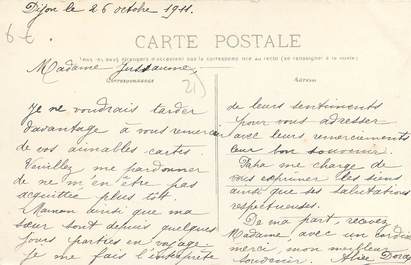 Dijon le 26 octobre 1911.
6 €
CARTE POSTALE
Madame
Correspondance
Adresse
Je ne voudrais tarder
davantage à vous remercier
de vos aimables cartes
Veuillez me pardonner
de ne m'en être pas
acquittée plus tôt.
Maman ainsi que ma
sœur sont depuis quelques
jours parties en voyage
je me fais l'interprète
de leurs sentiments
pour vous adresser
avec leurs remerciements
leur bon souvenir.
Papa me charge de
vous exprimer les siens
ainsi que ses salutations
respectueuses.
De ma part, recevez
Madame, avec un cordial
merci, mon meilleur
souvenir. Alice